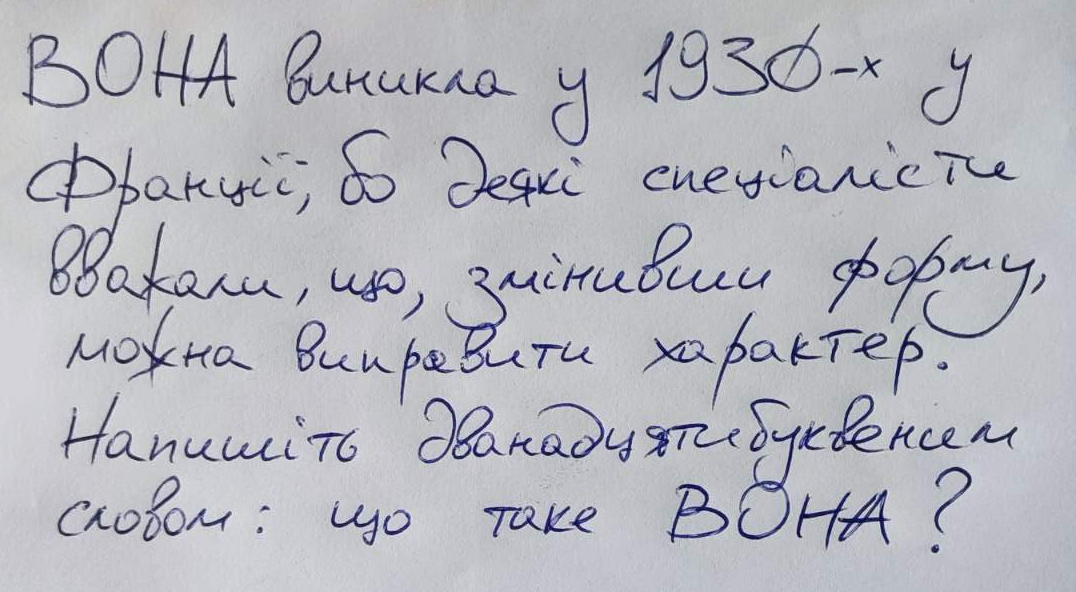 ВОНА виникла у 1930-х у
Франції, бо деякі спеціалісти
вважали, що, змінивши форму,
можна виправити характер.
Напишіть дванадцятибуквеним
словом: що таке ВОНА?